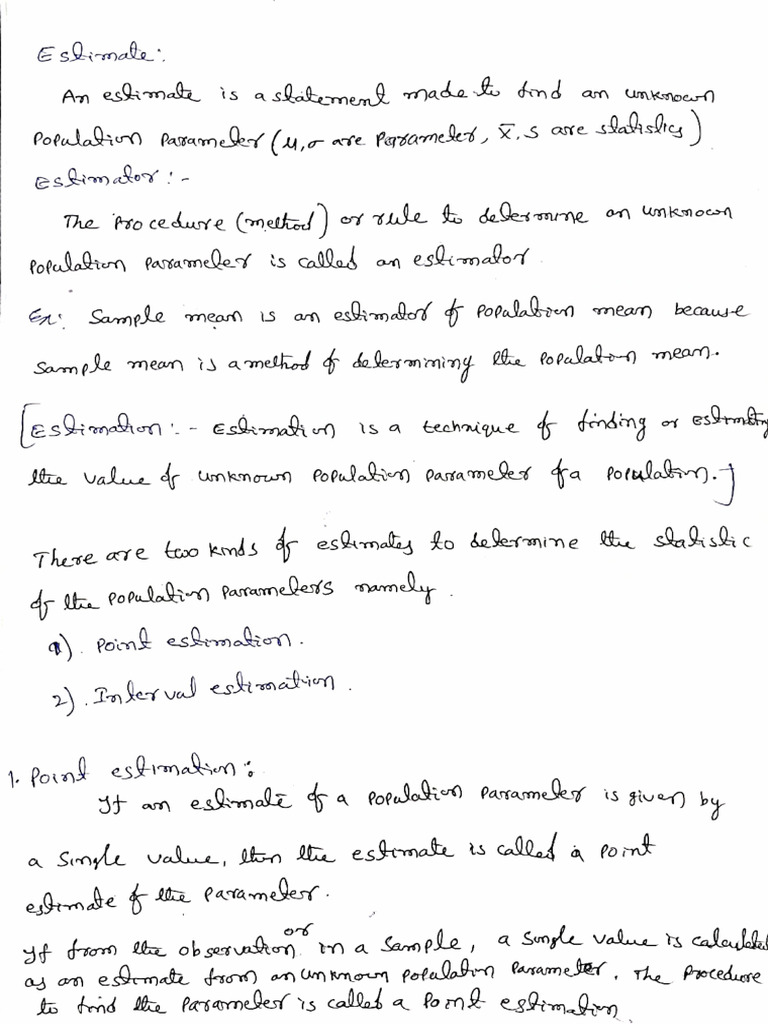 Estimate:
An estimate is a statement made to find an unknown
Population Parameter (μ, σ are Parameter, x̄, s are statistics)
Estimator: -
The Procedure (method) or rule to determine an unknown
Population Parameter is called an estimator
Ex: Sample mean is an estimator of Population mean because
Sample mean is a method of determining the Population mean.
[Estimation: - Estimation is a technique of finding or estimating
the value of unknown Population Parameter of a Population.]
There are two kinds of estimates to determine the statistic
of the Population Parameters namely.
1). Point estimation.
2). Interval estimation.
1. Point estimation:
If an estimate of a Population Parameter is given by
a single value, then the estimate is called a Point
estimate of the Parameter.
or
If from the observation in a Sample, a single value is calculated
as an estimate from an unknown Population Parameter. The Procedure
to find the Parameter is called a Point estimation.